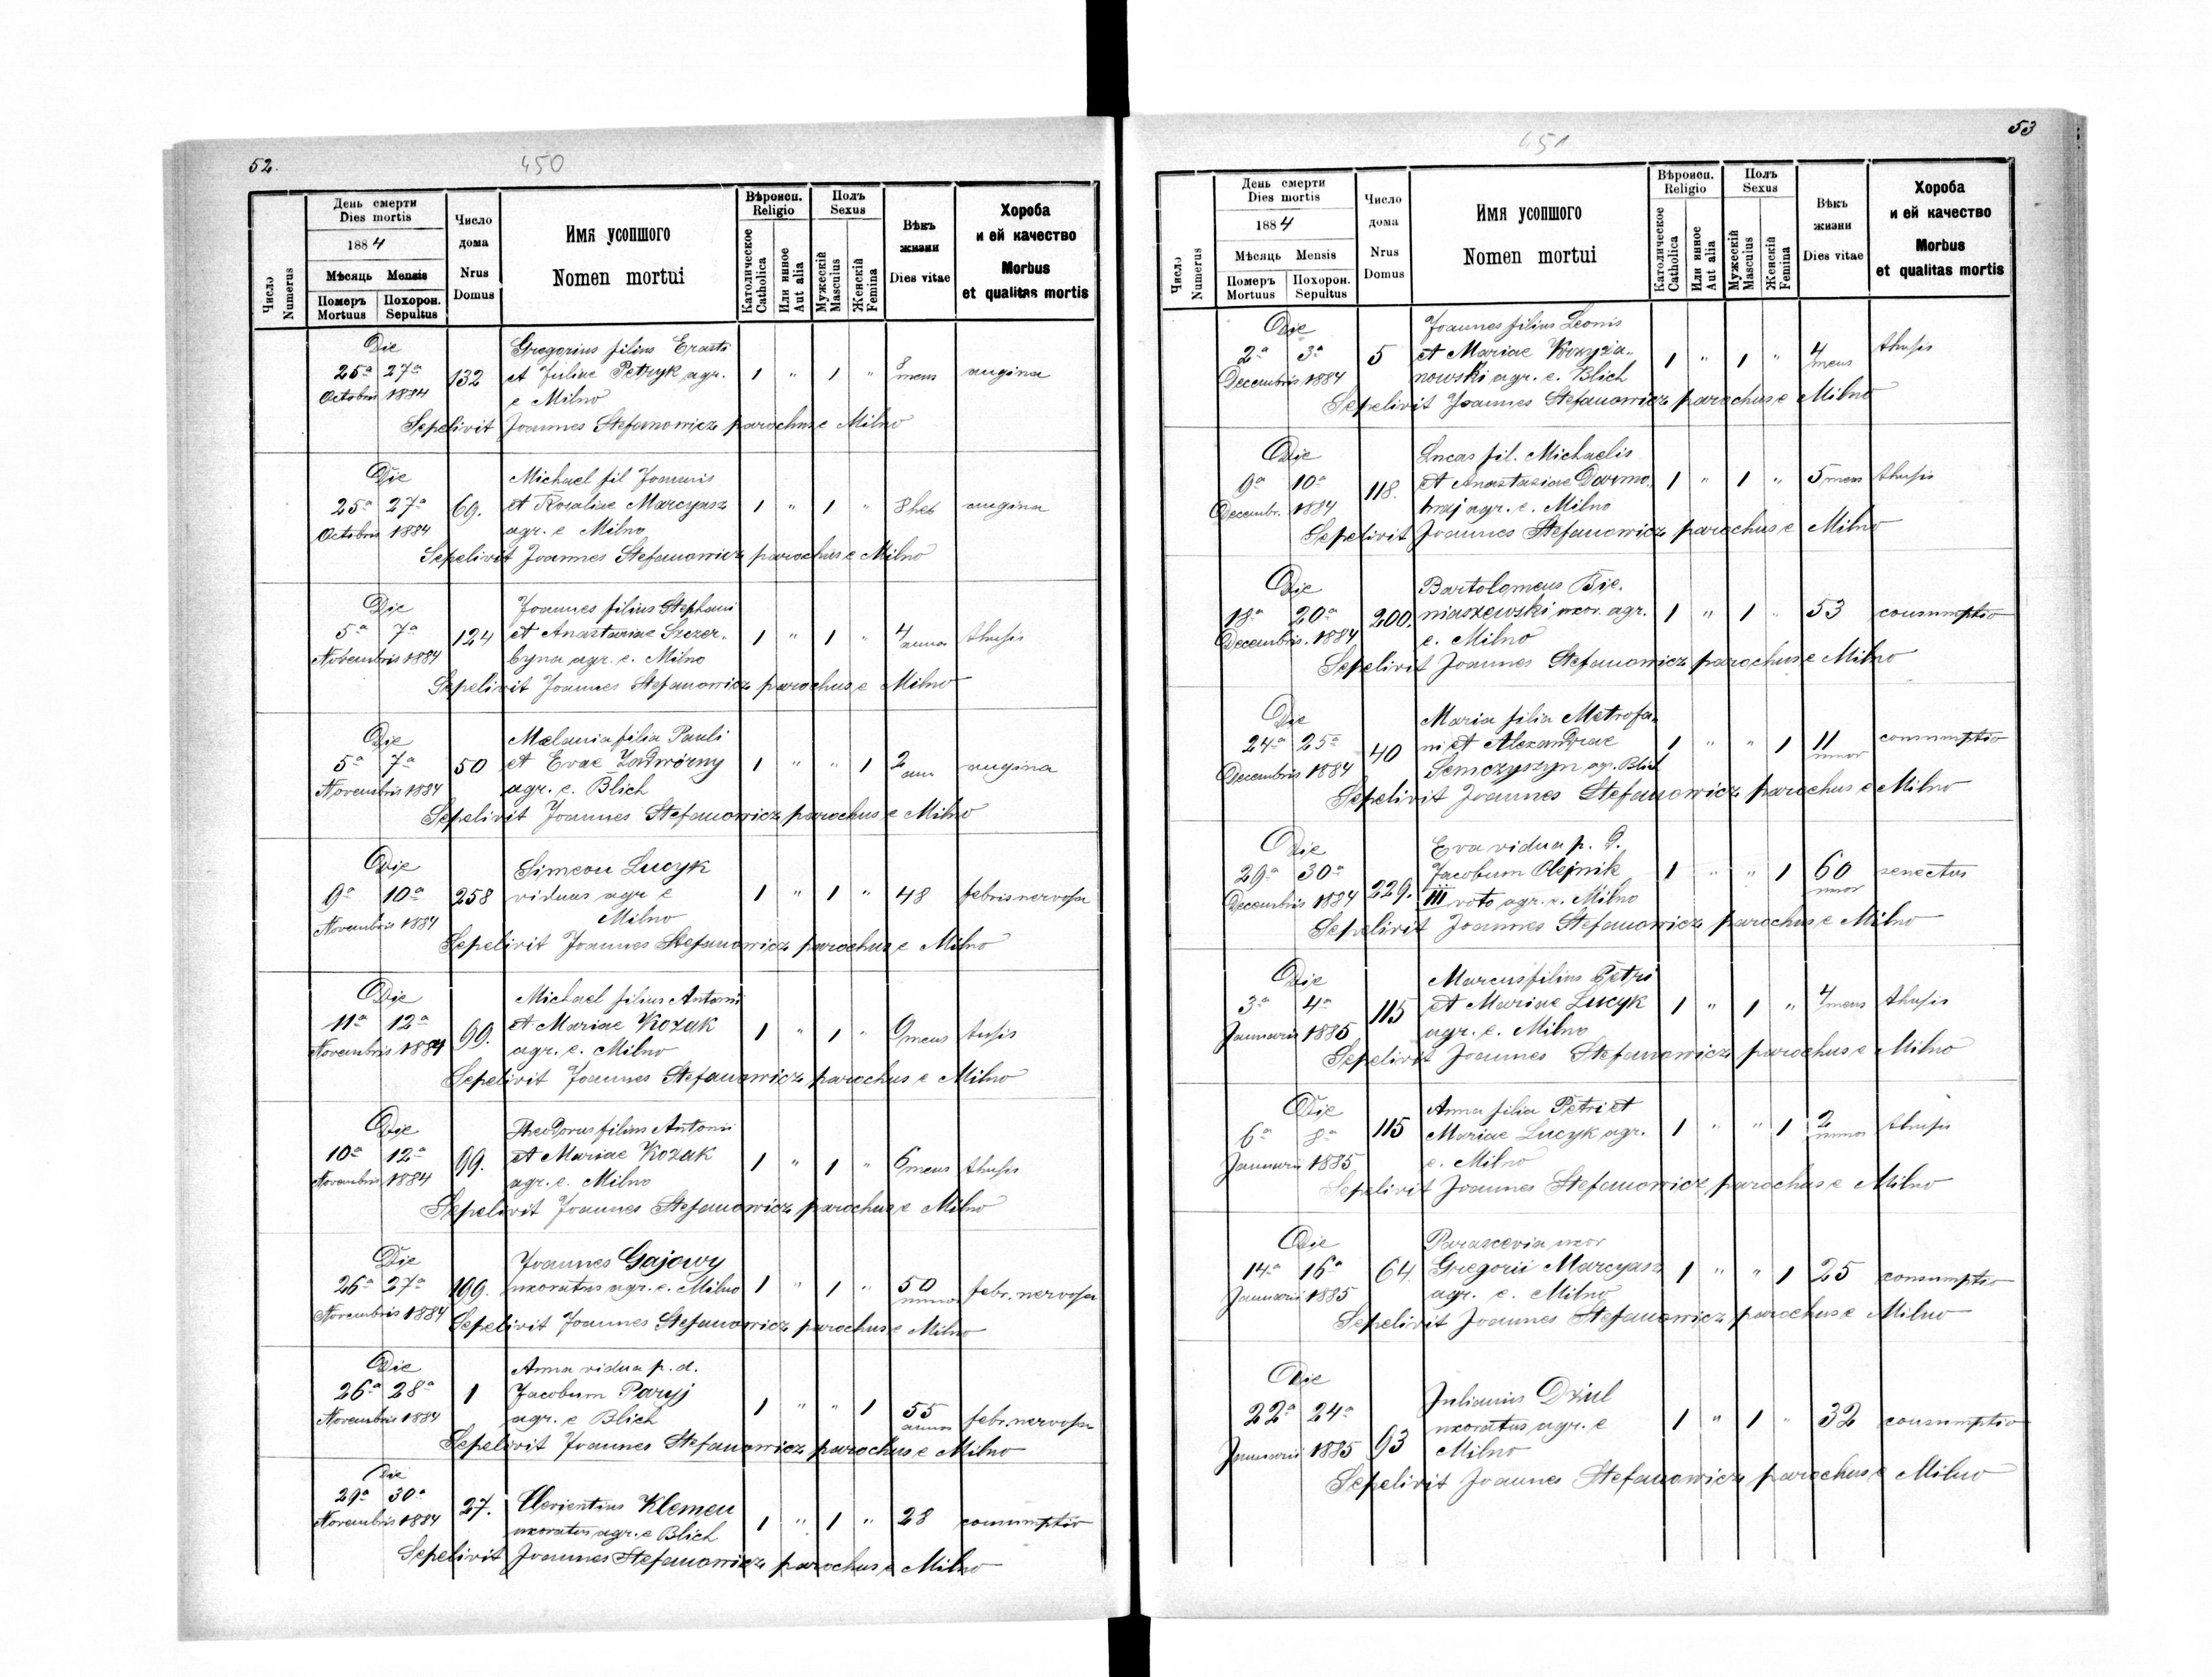 52.
450
Число Numerus
День смерти
Dies mortis
1884
Мѣсяць Mensis
Померъ Mortuus
Похорон. Sepultus
Число дома
Nrus Domus
Имя усопшого
Nomen mortui
Вѣроисп. Religio
Католическое Catholica
Или инное Aut alia
Полъ Sexus
Мужескій Masculus
Женскій Femina
Вѣкъ жизни
Dies vitae
Хороба и ей качество
Morbus et qualitas mortis
Die
Gregorius filius Erasti
25a 27a 132 et Juliae Petryk agr. 1 " 1 " 8 mens angina
Octobris 1884 e Milno
Sepelivit Joannes Stefanowicz parochus e Milno
Die
Michael fil Joannis
25a 27a 69. et Rosaliae Marcyasz 1 " 1 " 8 heb angina
Octobris 1884 agr. e Milno
Sepelivit Joannes Stefanowicz parochus e Milno
Die
Joannes filius Stephani
5a 7a 124 et Anastasiae Szczer- 1 " 1 " 4 annos thusis
Novembris 1884 byna agr. e. Milno
Sepelivit Joannes Stefanowicz parochus e Milno
Die
Melania filia Pauli
5a 7a 50 et Evae Zadwórny 1 " " 1 2 ann angina
Novembris 1884 agr. e. Blich
Sepelivit Joannes Stefanowicz parochus e Milno
Die
Simeon Lucyk
9a 10a 258 viduus agr e 1 " 1 " 48 febris nervosa
Novembris 1884 Milno
Sepelivit Joannes Stefanowicz parochus e Milno
Die
Michael filius Antoni
11a 12a 99. et Mariae Kozak 1 " 1 " 9 mens tusis
Novembris 1884 agr. e. Milno
Sepelivit Joannes Stefanowicz parochus e Milno
Die
Theodorus filius Antonii
10a 12a 99. et Mariae Kozak 1 " 1 " 6 mens thusis
Novembris 1884 agr. e. Milno
Sepelivit Joannes Stefanowicz parochus e Milno
Die
Joannes Gajowy
26a 27a 199. uxoratus agr. e. Milno 1 " 1 " 50 annos febr. nervosa
Novembris 1884
Sepelivit Joannes Stefanowicz parochus e Milno
Die
Anna vidua p. d.
26a 28a 1 Jacobum Paryj 1 " " 1 55 annos febr. nervosa
Novembris 1884 agr. e Blich
Sepelivit Joannes Stefanowicz parochus e Milno
Die
29a 30a 27. Klemen 1 " 1 " 28 consumptio
Novembris 1884 uxoratus agr. e Blich
Sepelivit Joannes Stefanowicz parochus e Milno
53
451
Число Numerus
День смерти
Dies mortis
1884
Мѣсяць Mensis
Померъ Mortuus
Похорон. Sepultus
Число дома
Nrus Domus
Имя усопшого
Nomen mortui
Вѣроисп. Religio
Католическое Catholica
Или инное Aut alia
Полъ Sexus
Мужескій Masculus
Женскій Femina
Вѣкъ жизни
Dies vitae
Хороба и ей качество
Morbus et qualitas mortis
Die
Joannes filius Leonis
2a 3a 5 et Mariae Krzyża- 1 " 1 " 4 mens thusis
Decembris 1884 nowski agr. e. Blich
Sepelivit Joannes Stefanowicz parochus e Milno
Die
Lucas fil. Michaelis
9a 10a 118. et Anastasiae Darmo- 1 " 1 " 5 mens thusis
Decembr. 1884 hraj agr. e. Milno
Sepelivit Joannes Stefanowicz parochus e Milno
Die
Bartolomeus Bie-
18a 20a 200. niaszewski uxor. agr. 1 " 1 " 53 consumptio
Decembris. 1884 e. Milno
Sepelivit Joannes Stefanowicz parochus e Milno
Die
Maria filia Metrofa-
24a 25a 40 ni et Alexandrae 1 " " 1 11 consumptio
Decembris 1884 Semczyszyn agr. Blich
Sepelivit Joannes Stefanowicz parochus e Milno
Die
Eva vidua p. d.
29a 30a 229. Jacobum Olejnik 1 " " 1 60 senectus
Decembris 1884 III voto agr. e. Milno
Sepelivit Joannes Stefanowicz parochus e Milno
Die
Marcus filius Petri
3a 4a 115 et Mariae Lucyk 1 " 1 " 4 mens thusis
Januarii 1885 agr. e. Milno
Sepelivit Joannes Stefanowicz parochus e Milno
Die
Anna filia Petri et
6a 8a 115 Mariae Lucyk agr. 1 " " 1 2 annos thusis
Januarii 1885 e. Milno
Sepelivit Joannes Stefanowicz parochus e Milno
Die
Parascevia uxor
14a 16a 64. Gregorii Marcyasz 1 " " 1 25 consumptio
Januarii 1885 agr. e. Milno
Sepelivit Joannes Stefanowicz parochus e Milno
Die
Julianus Dziul
22a 24a 93 uxoratus agr. e 1 " 1 " 32 consumptio
Januarii 1885 Milno
Sepelivit Joannes Stefanowicz parochus e Milno